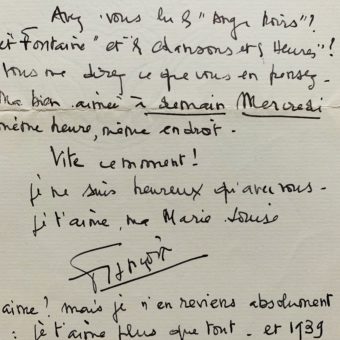 Avez-vous lu les "Anges Noirs"?
et Fontaine" et les chansons et les Heures"!
Vous me direz ce que vous en pensez.
Ma bien aimée à demain Mercredi
même heure, même endroit.
Vite ce moment!
je ne suis heureux qu'avec vous.
je t'aime, ma Marie Louise
François
aime! mais je n'en reviens absolument
: je t'aime plus que tout. et 1939